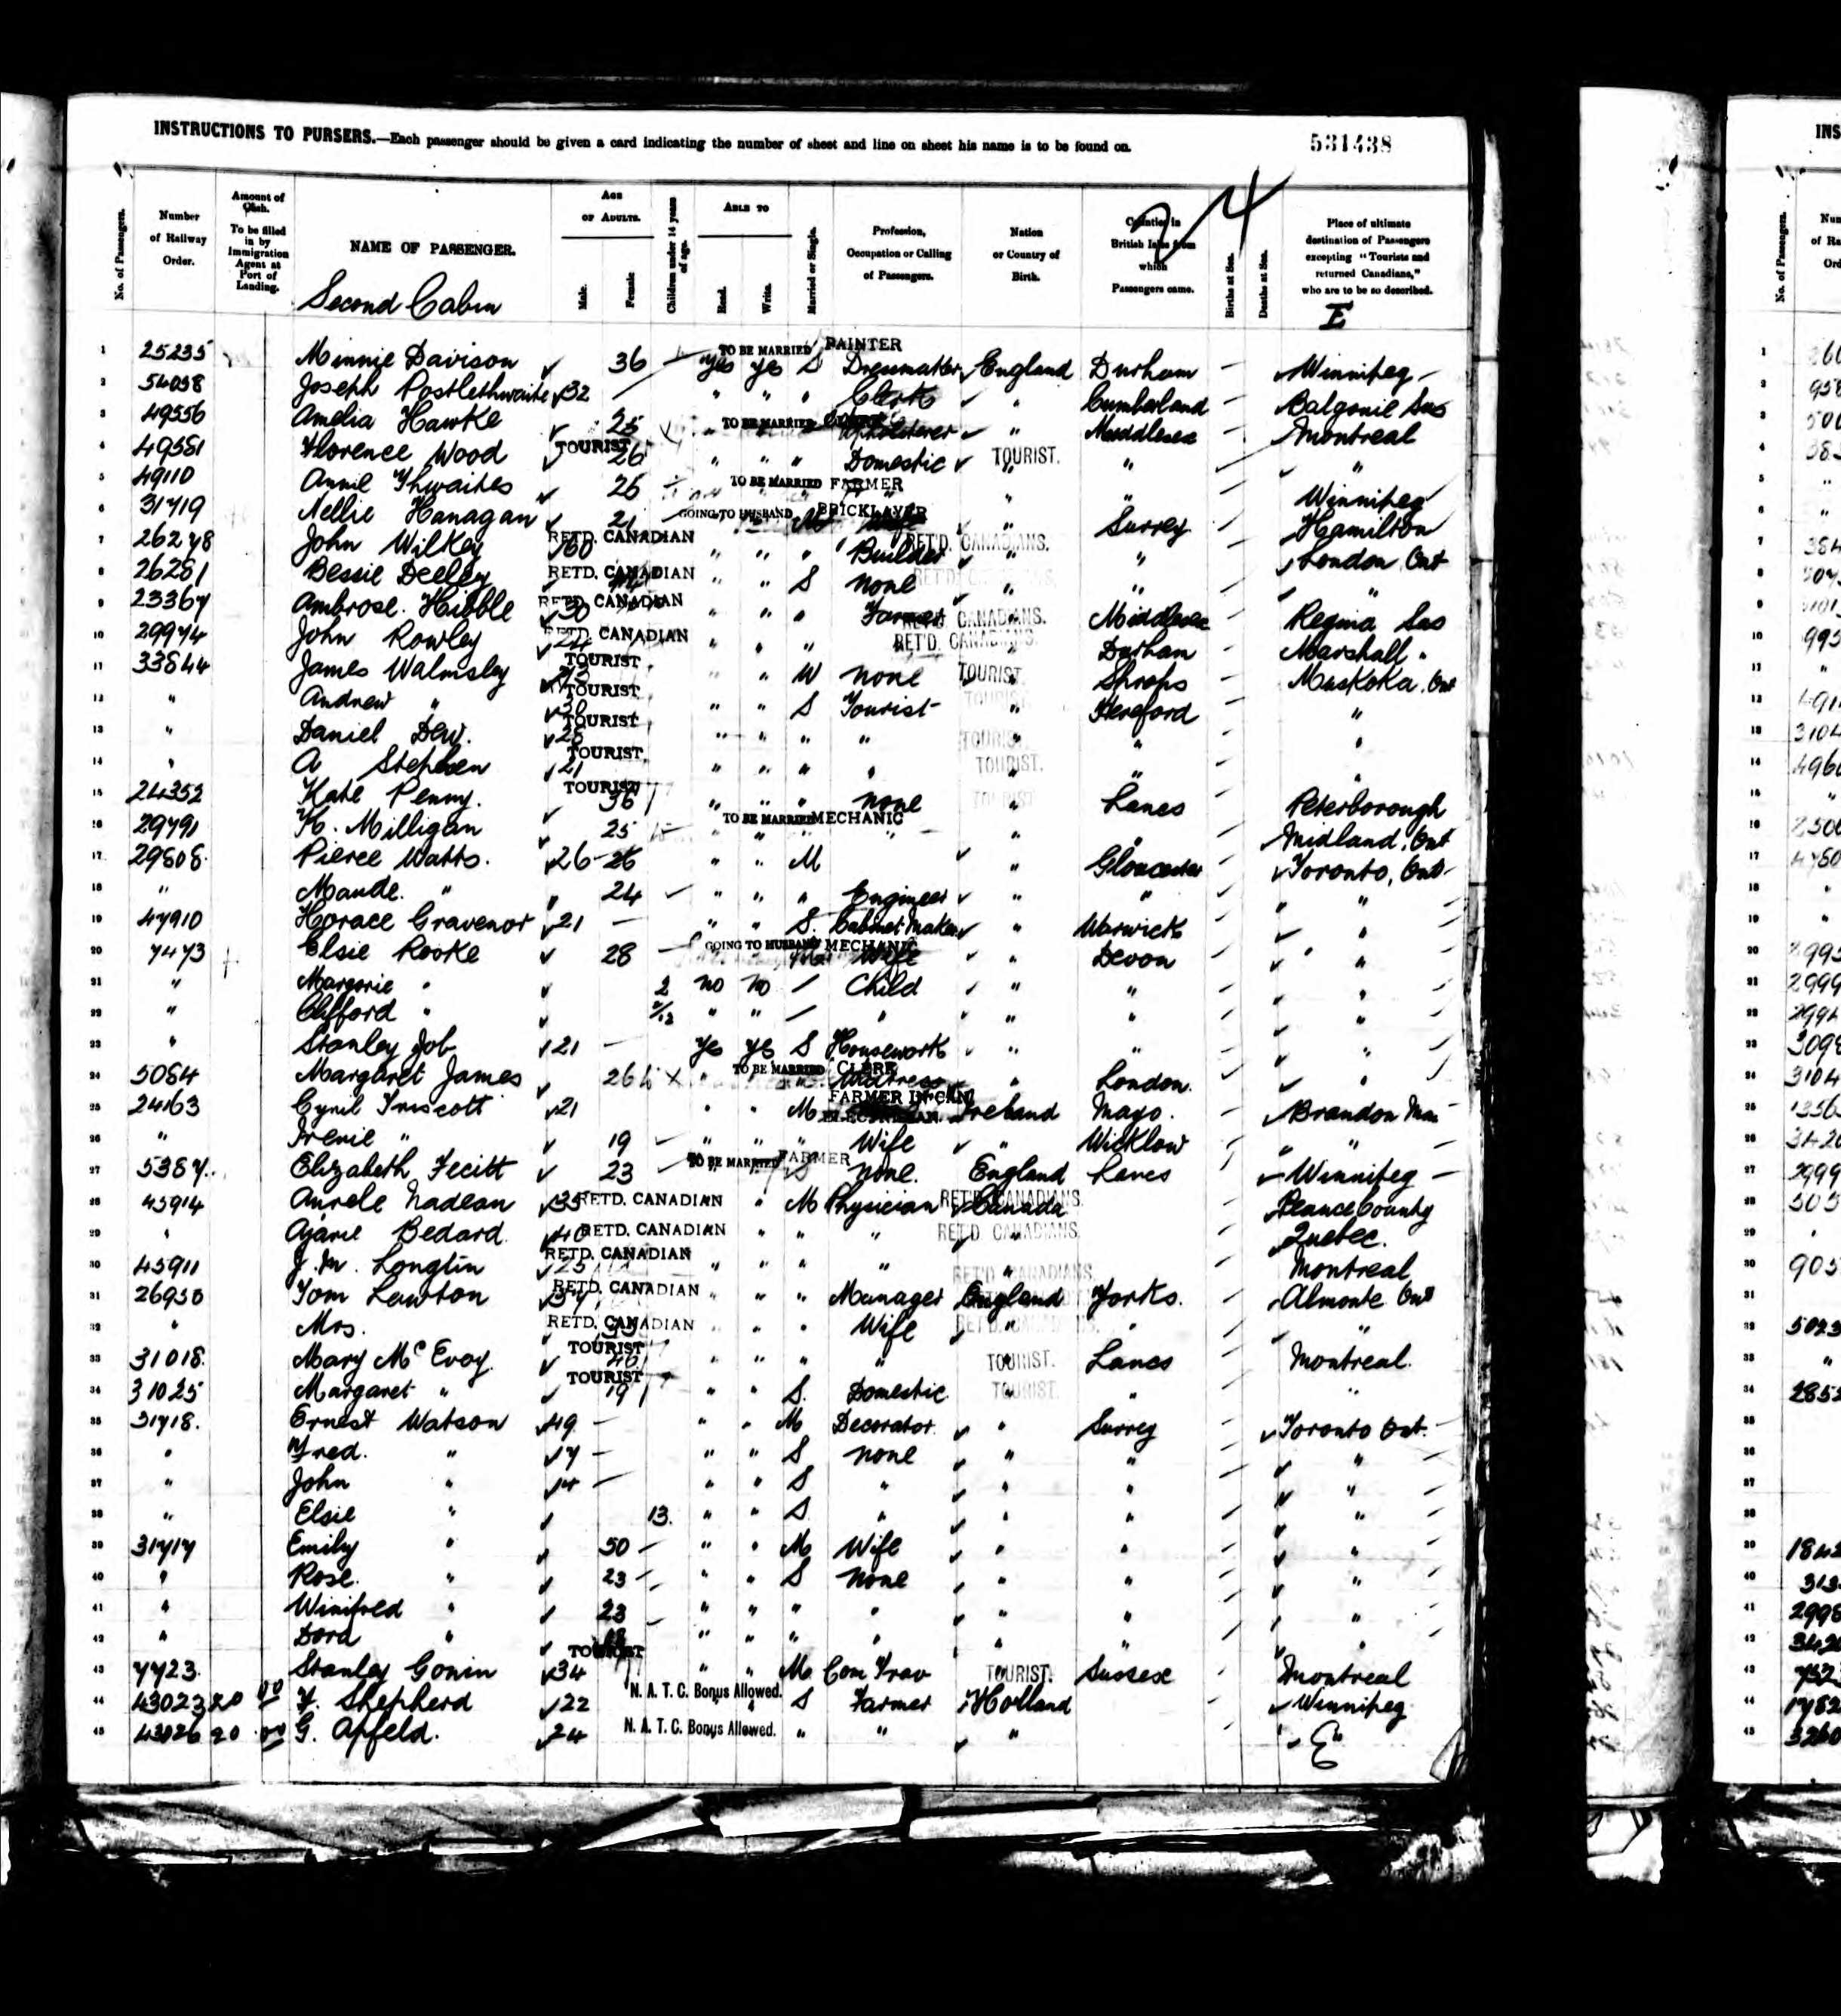 INSTRUCTIONS TO PURSERS.—Each passenger should be given a card indicating the number of sheet and line on sheet his name is to be found on. 531438
No. of Passengers. Number of Railway Order. Amount of Cash. To be filled in by Immigration Agent at Port of Landing. NAME OF PASSENGER. AGE OF ADULTS. Male. Female Children under 14 years of age. ABLE TO Read. Write. Married or Single. Profession, Occupation or Calling of Passengers. Nation or Country of Birth. Counties in British Isles from which Passengers came. Births at Sea. Deaths at Sea. Place of ultimate destination of Passengers excepting "Tourists and returned Canadians," who are to be so described.
Second Cabin
1 25235 Minnie Davison 36 Yes Yes TO BE MARRIED S PAINTER Dressmaker England Durham Winnipeg
2 54038 Joseph Postlethwaite 32 " " " Clerk " Cumberland Balgonie Sas
3 49556 Amelia Hawke 25 " TO BE MARRIED Upholsterer " Middlesex Montreal
4 49581 Florence Wood TOURIST 26 " " " Domestic TOURIST. " "
5 49110 Annie Thwaites 25 TO BE MARRIED FARMER " " Winnipeg
6 31719 Nellie Hanagan 21 GOING TO HUSBAND M BRICKLAYER Wife " Surrey Hamilton
7 26278 John Wilkey 60 RETD. CANADIAN " " " Builder RET'D. CANADIANS. " London Ont
8 26281 Bessie Deeley RETD. CANADIAN " " S none " " "
9 23367 Ambrose Hibble 30 RETD. CANADIAN " " " Farmer CANADIANS. Middlesex Regina Sas
10 29974 John Rowley RETD. CANADIAN " " " RET'D. CANADIANS. Durham Marshall "
11 33844 James Walmsley TOURIST " " W none TOURIST. Shrops Muskoka, Ont
12 " Andrew " 30 TOURIST " " S Tourist " Hereford "
13 " Daniel Dew. 28 TOURIST " " " " TOURIST. " "
14 " A Stephen 21 TOURIST. " " " " TOURIST. " "
15 24352 Kate Penny. TOURIST 36 " " " none " Lancs Peterborough
16 29791 K. Milligan 25 TO BE MARRIED MECHANIC " " " Midland, Ont
17 29808. Pierce Watts. 26 26 " " M " Gloucester Toronto, Ont
18 " Maude. " 24 " " " Engineer " " "
19 47910 Horace Gravenor 21 " " S. Cabinet Maker " Warwick "
20 7473 Elsie Rooke 28 GOING TO HUSBAND MECHANIC Wife " Devon "
21 " Marjorie " 2 no no Child " " "
22 " Clifford " " " " " " "
23 " Stanley Job 21 Yes Yes S Housework " " "
24 5084 Margaret James 26 " TO BE MARRIED CLERK Waitress " London. "
25 24163 Cyril Triscott 21 " " M FARMER IN CAN Ireland Mayo. Brandon Man
26 " Irenie " 19 " " " Wife " Wicklow " "
27 5387. Elizabeth Fecitt 23 TO BE MARRIED FARMER S none. England Lancs Winnipeg
28 45914 Aurele Nadeau 35 RETD. CANADIAN " M Physician RET'D CANADIANS. Canada Beauce County
29 " Ajarie Bedard. 40 RETD. CANADIAN " " " RET'D CANADIANS. " Quebec.
30 45911 J. M. Longtin 25 RETD. CANADIAN " " " " RET'D CANADIANS. " Montreal
31 26950 Tom Lawton RETD. CANADIAN " " " Manager England Yorks. Almonte Ont
32 " Mrs. RETD. CANADIAN " " " Wife " " "
33 31018. Mary McEvoy. TOURIST 46 " " " " TOURIST. Lancs Montreal.
34 31025 Margaret " TOURIST 19 " " S. Domestic TOURIST. " "
35 31718. Ernest Watson 49 " " M Decorator " Surrey Toronto Ont.
36 " Fred. " 17 " " S none " " "
37 " John " 14 " " S " " " "
38 " Elsie " 13. " " S " " " "
39 31717 Emily " 50 " " M Wife " " "
40 " Rose. " 23 " " S none " " "
41 " Winifred " 23 " " " " " " "
42 " Dora " 18 " " " " " " "
43 7723. Stanley Gonin 34 TOURIST " " M Com Trav TOURIST. Sussex Montreal
44 43023 20 00 F. Shepherd 22 N. A. T. C. Bonus Allowed. S Farmer Holland Winnipeg
45 43026 20 00 G. Apfeld. 24 N. A. T. C. Bonus Allowed. " " " "